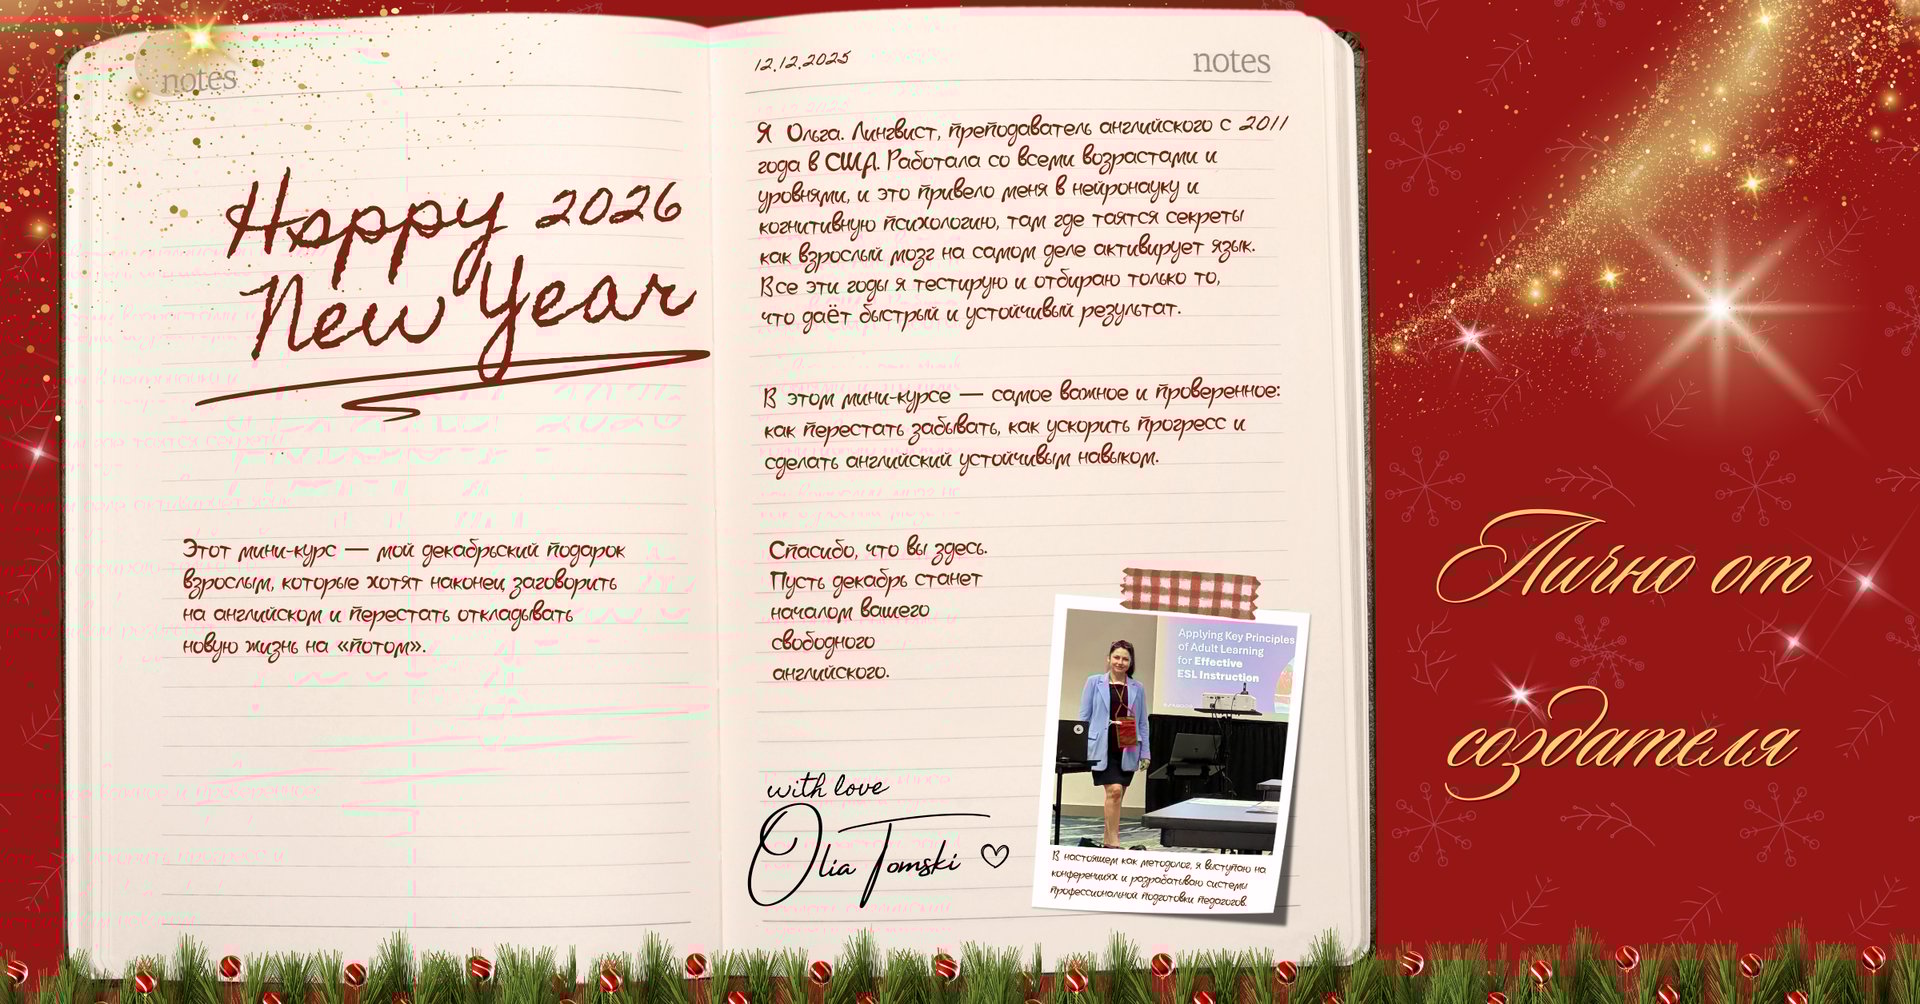 notes
Happy 2026
New Year
Этот мини-курс — мой декабрьский подарок
взрослым, которые хотят наконец заговорить
на английском и перестать откладывать
новую жизнь на «потом».
12.12.2025
notes
Я Ольга. Лингвист, преподаватель английского с 2011
года в США. Работала со всеми возрастами и
уровнями, и это привело меня в нейронауку и
когнитивную психологию, там где таятся секреты
как взрослый мозг на самом деле активирует язык.
Все эти годы я тестирую и отбираю только то,
что даёт быстрый и устойчивый результат.
В этом мини-курсе — самое важное и проверенное:
как перестать забывать, как ускорить прогресс и
сделать английский устойчивым навыком.
Спасибо, что вы здесь.
Пусть декабрь станет
началом вашего
свободного
английского.
with love
Olia Tomski
Applying Key Principles
of Adult Learning
for Effective
ESL Instruction
В настоящем как методолог, я выступаю на
конференциях и разрабатываю системы
профессиональной подготовки педагогов.
Лично от
создателя